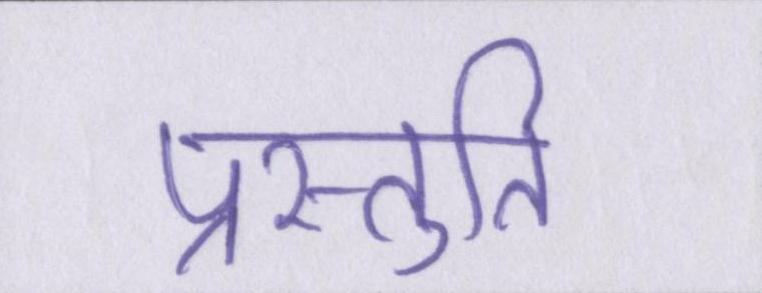 प्रस्तुति